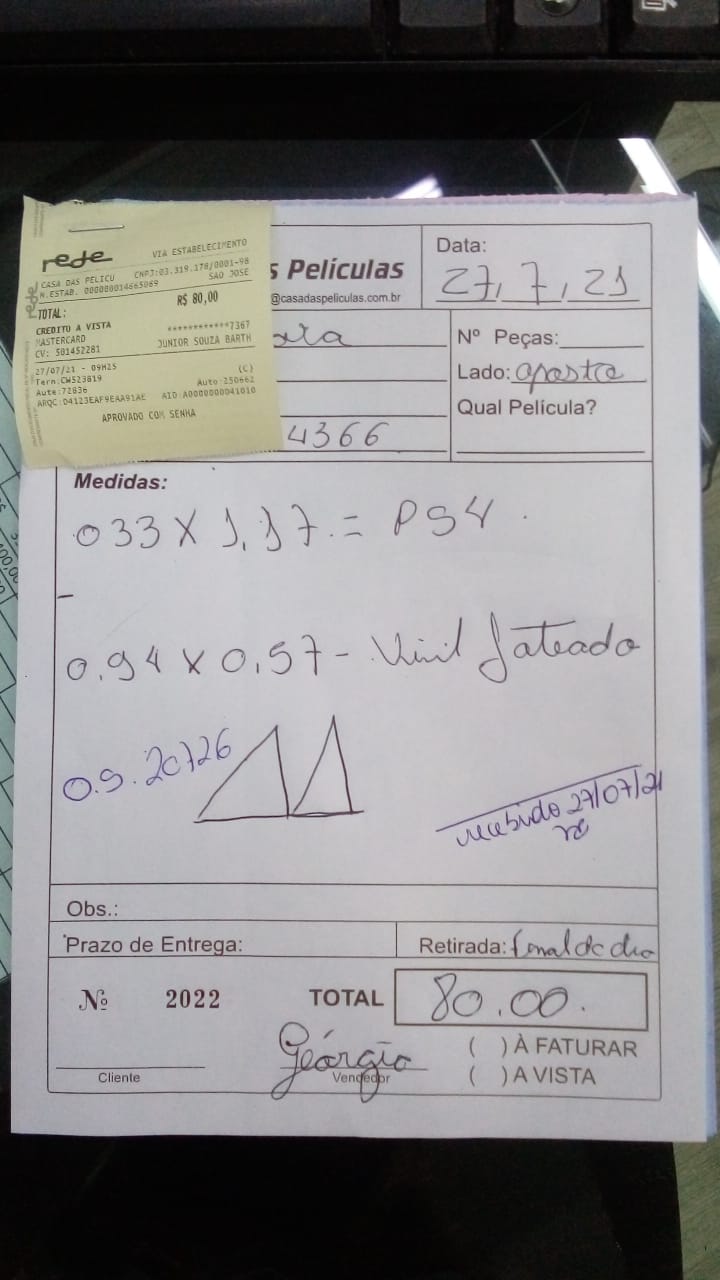 rede
VIA ESTABELECIMENTO
CASA DAS PELICU CNPJ:03.319.178/0001-98
N.ESTAB. 000000014665069 SAO JOSE
TOTAL: R$ 80,00
CREDITO A VISTA
MASTERCARD ************7367
CV: 501452281 JUNIOR SOUZA BARTH
27/07/21 - 09H25 (C)
Term:CW523819 Auto:250662
Aute:72836
ARQC:D4123EAF9EAA91AE AID:A0000000041010
APROVADO COM SENHA
s Películas
@casadaspeliculas.com.br
Data:
27, 7, 21
Nº Peças:
Lado: oposto
Qual Película?
4366
Medidas:
033 X 1,17. = PS4.
0.94 X 0,57 - Vinil Jateado
0.S. 20726
recebido 27/07/21
Obs.:
Prazo de Entrega:
Retirada: final de dia
Nº 2022
TOTAL 80,00.
Geórgio
Cliente
Vendedor
( ) À FATURAR
( ) A VISTA